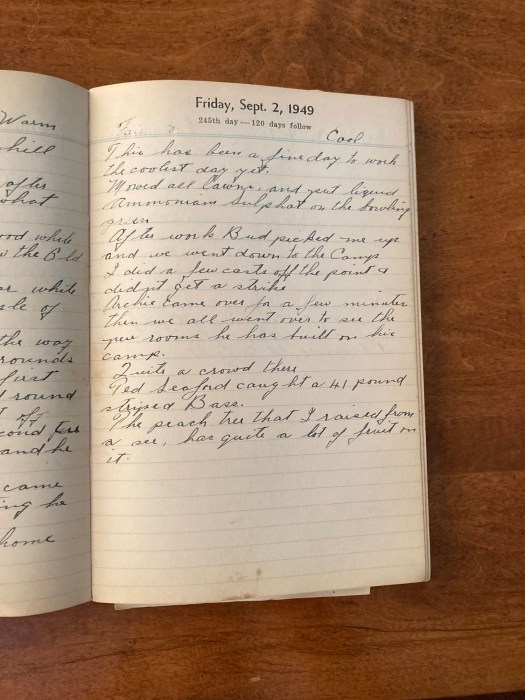 Warm
hill
after
what
ood while
w the 6 ld
or while
sle of
the way
rounds
first
d round
t off
cond tee
and he
came
ing he
home
Friday, Sept. 2, 1949
245th day—120 days follow
Fair Cool
This has been a fine day to work
the coolest day yet.
Mowed all Lawns, and put liquid
Ammonian Sulphat on the bowling
green
After work Bud picked me up
and we went down to the Camp
I did a few casts off the point &
did,nt get a strike
Archie came over for a few minutes
then we all went over to see the
new rooms he has built on his
camp.
Quite a crowd there
Ted Seaford caught a 41 pound
striped Bass.
The peach tree that I raised from
a see, has quite a lot of fruit on
it.